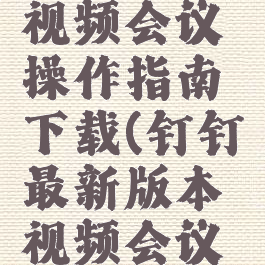 视频会议
操作指南
下载(钉钉
最新版本
视频会议